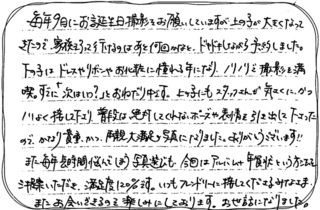 毎年9月にお誕生日撮影をお願いしていますが上の子が大きくなって
きたので、家族そろって行けるのはあと何回かな?と、ドキドキしながら予約しました。
下の子はドレスやリボンやお化粧に憧れる年になり、ノリノリで撮影を満
喫。すでに「次はいつ?」とおねだり中です。上の子にもスタッフさんが気さくに、かっこ
いいよく接して下さり普段は絶対してくれないポーズや表情を引き出して下さった
ので、かなり貴重、かつ、両親大満足な写真になりました。ありがとうございます!!
また毎年長時間悩んでしまう写真選びも、今回はアルバムや年賀状という方法を
ご提案いただき、満足度120%です。いつもフレンドリーに接してくださるみなさま、
またお会いできるのを楽しみにしております。お世話になりました。